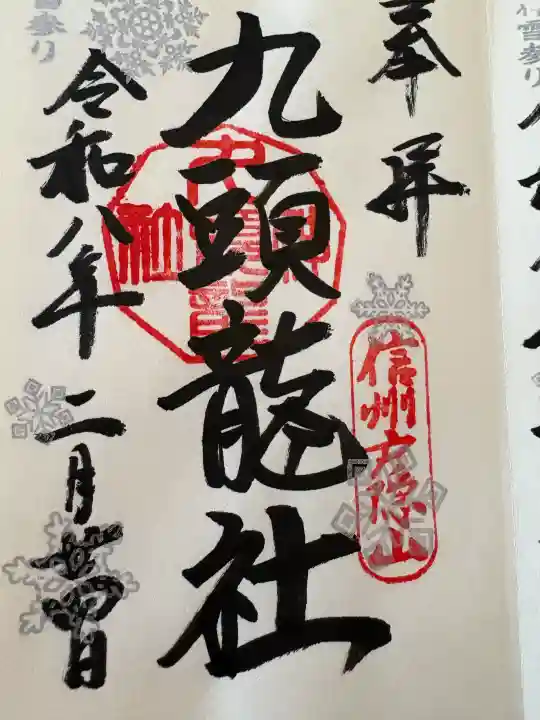 奉拝
信州戸隠山
九頭龍社
令和八年二月廿四日
雪参り
雪参り